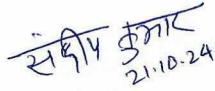 संदीप कुमार
21.10.24